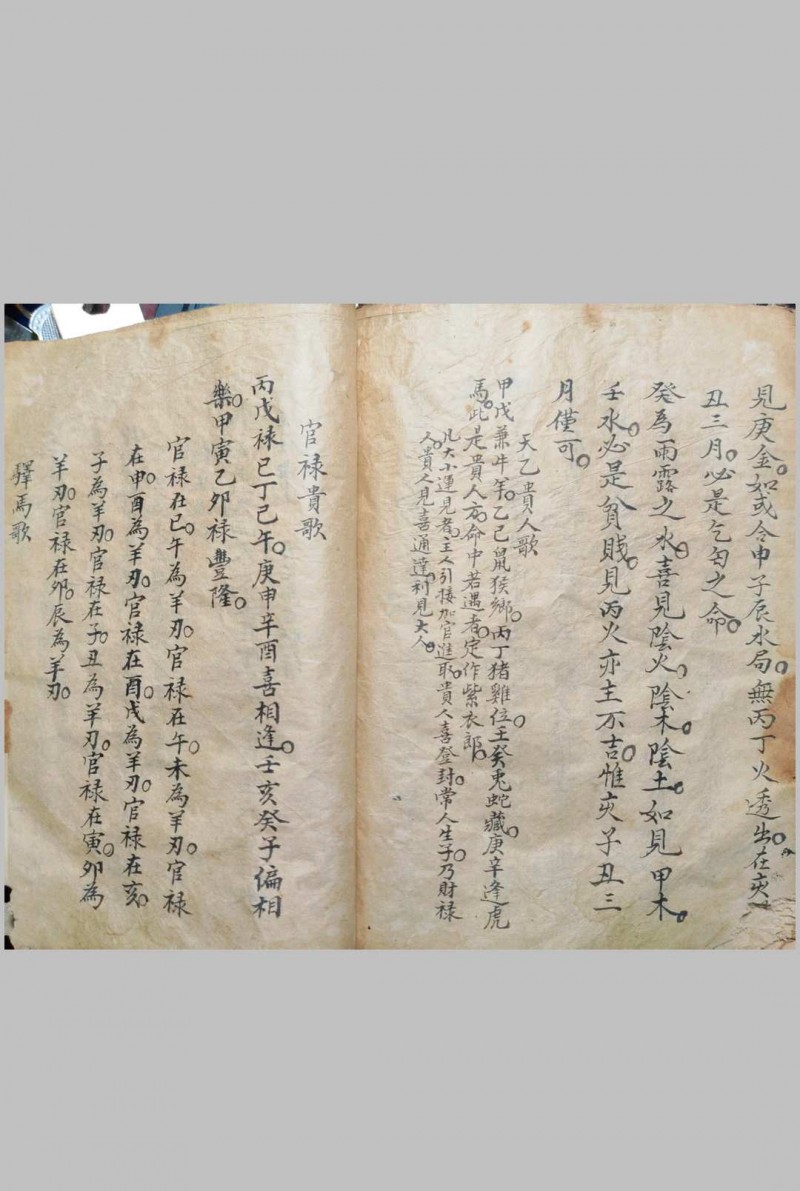 見庚金。如或令申子辰水局。無丙丁火透出。在亥
丑三月。必是乞匃之命。
癸為雨露之水。喜見陰火。陰木。陰土。如見甲木。
壬水。必是貧賤。見丙火亦主不吉。惟亥子丑三
月僅可。
天乙貴人歌
甲戊兼牛羊。乙己鼠猴鄉。丙丁猪雞位。壬癸兎蛇藏。庚辛逢虎
馬。此是貴人方。命中若遇者。定作紫衣郎。
凡大小運見者。主人引接加官進取。貴人喜登封。常人生子。乃財禄
人。貴人見喜通達。利見大人。
官禄貴歌
丙戊禄巳丁己午。庚申辛酉喜相逢。壬亥癸子偏相
樂。甲寅乙卯禄豐隆。
官禄在巳。午為羊刃。官禄在午。未為羊刃。官禄
在申。酉為羊刃。官禄在酉。戌為羊刃。官禄在亥。
子為羊刃。官禄在子。丑為羊刃。官禄在寅。卯為
羊刃。官禄在卯。辰為羊刃。
驛馬歌